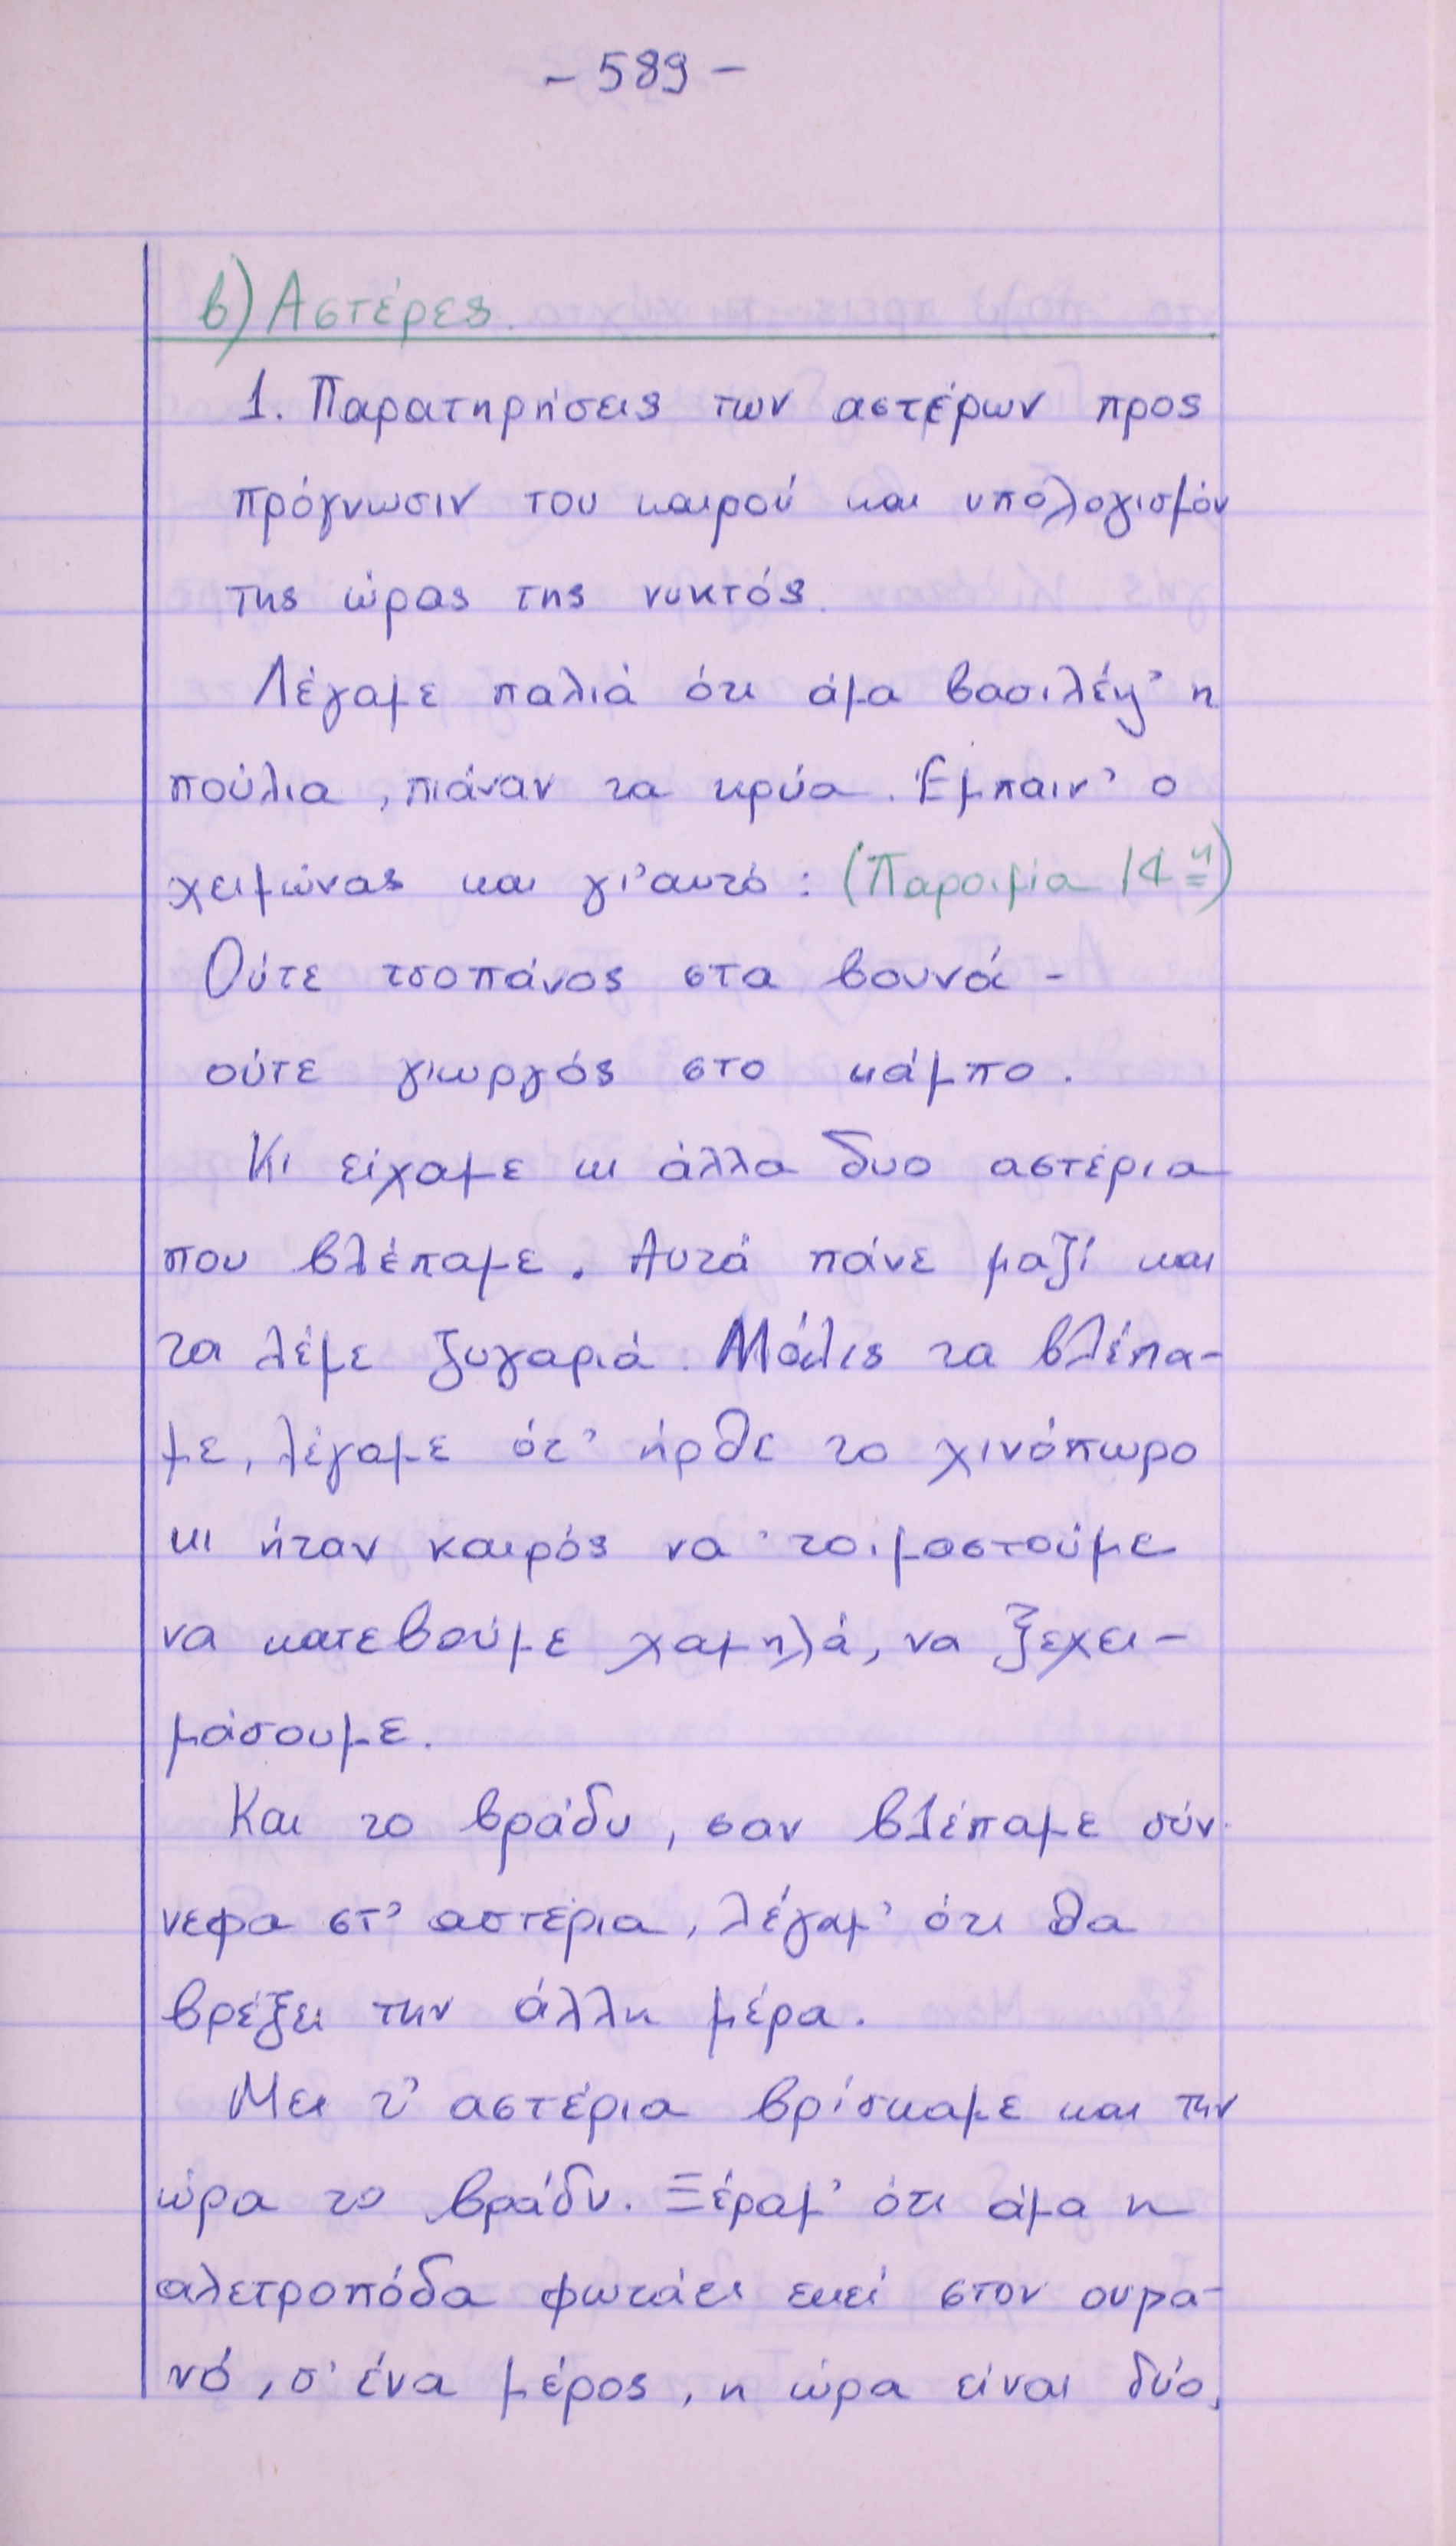 - 589 -
β) Αστέρες.
1. Παρατηρήσεις των αστέρων προς
πρόγνωσιν του καιρού και υπολογισμόν
της ώρας της νυκτός.
Λέγαμε παλιά ότι άμα βασιλέψ' η
πούλια, πιάναν τα κρύα. Έμπαιν' ο
χειμώνας και γι' αυτό: (Παροιμία 14η)
Ούτε τσοπάνος στα βουνά -
ούτε γιωργός στο κάμπο.
Κι είχαμε κι άλλα δυο αστέρια
που βλέπαμε. Αυτά πάνε μαζί και
τα λέμε ζυγαριά. Μόλις τα βλέπα-
με, λέγαμε ότ' ήρθε το χινόπωρο
κι ήταν καιρός να 'τοιμαστούμε
να κατεβούμε χαμηλά, να ξεχει-
μάσουμε.
Και το βράδυ, σαν βλέπαμε σύν-
νεφα στ' αστέρια, λέγαμ' ότι θα
βρέξει την άλλη μέρα.
Με τ' αστέρια βρίσκαμε και την
ώρα το βράδυ. Ξέραμ' ότι άμα η
αλετροπόδα φωτάει εκεί στον ουρα-
νό, σ' ένα μέρος, η ώρα είναι δύο,